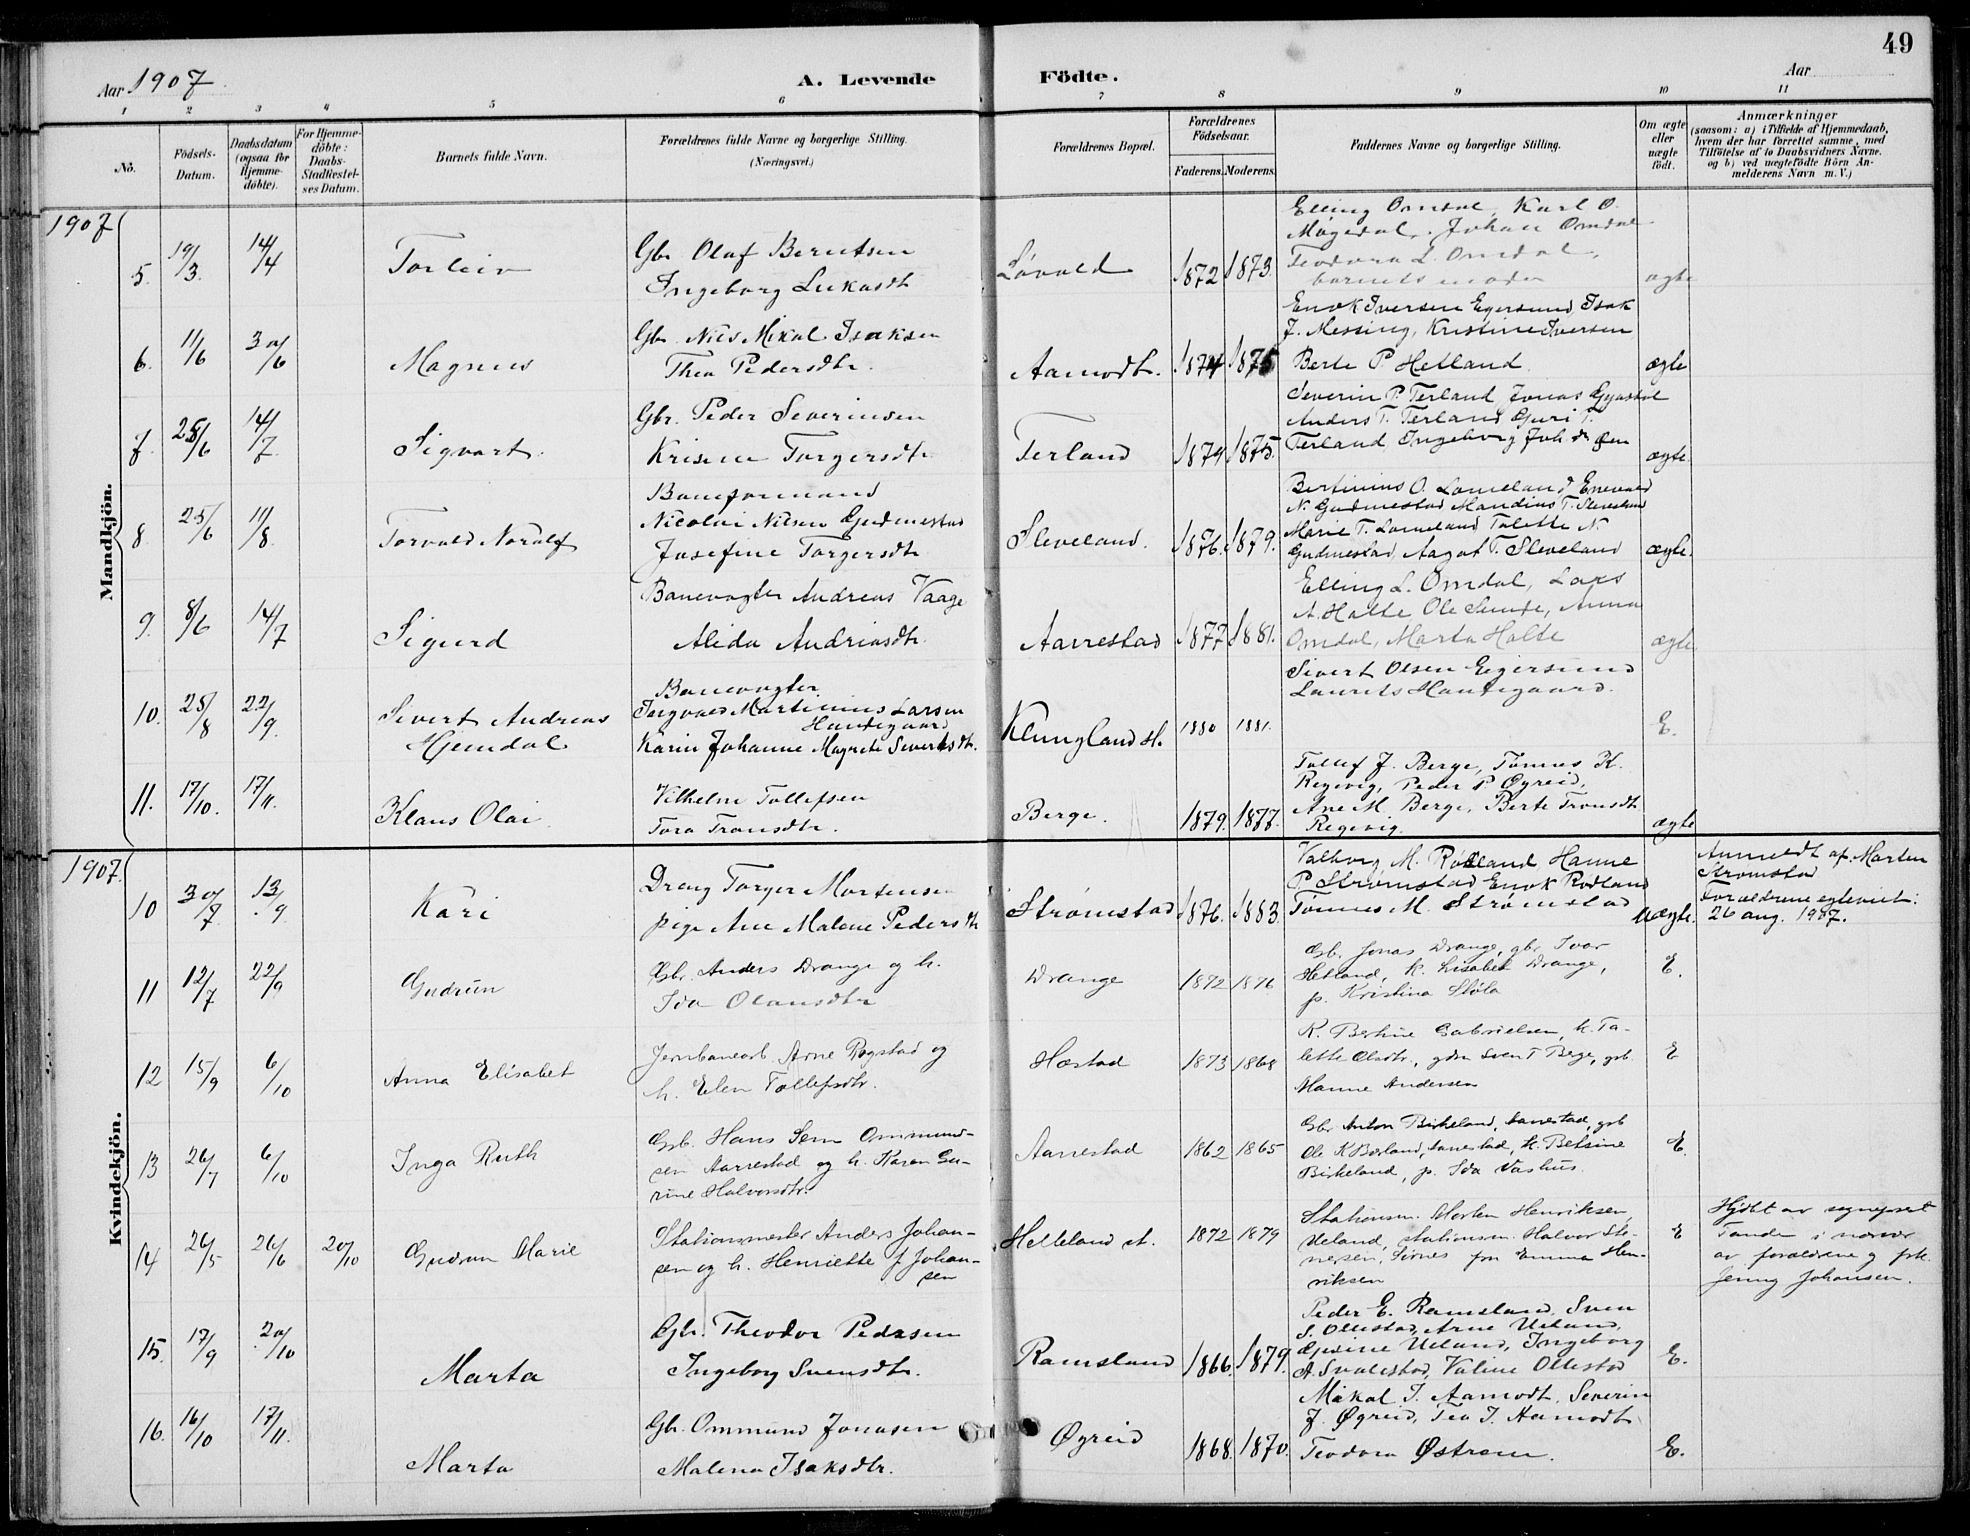 49
Aar 1907
A. Levende Födte.
Aar
1 2 3 4 5 6 7 8 9 10 11
No.
Födsels-Datum.
Daabsdatum (ogsaa för Hjemme-döbte).
For Hjemme-döbte: Daabs-Stadfestel-ses Datum.
Barnets fulde Navn.
Forældrenes fulde Navne og borgerlige Stilling.
(Næringsvei.)
Forældrenes Bopæl.
Forældrenes Födselsaar.
Faderens. Moderens.
Faddernes Navne og borgerlige Stilling.
Om ægte eller uægte födt.
Anmærkninger
(saasom: a) i Tilfælde af Hjemmedaab,
hvem der har forrettet samme, med
Tilföielse af to Daabsvidners Navne,
og b) ved uægtefödte Börn An-
melderens Navn m. V.)
Mandkjön.
1907
5. 19/3. 14/4 Torleiv
Gbr Olaf Berntsen
Ingeborg Lukasdtr
Løvold 1872 1873.
Elling Omdal, Karl O.
Møgedal, Johan Omdal
Teodora L. Omdal,
barnets moder
ægte
6. 11/6 30/6 Magnus
Gbr. Nils Mikal Isaksen
Thea Pedersdtr.
Aamodt. 1874 1875
Enok Iversen Egersund Isak
J. Messing, Kristine Iversen
Berte P. Hetland
ægte
7. 25/6 14/7 Sigvart.
Gbr. Peder Severinsen
Torgersdtr
Terland 1879 1875.
Severin P. Terland, Jonas
Anders T. Terland Guri T.
Terland Ingeborg
ægte.
8 25/6 11/8. Torvald Noralf
Baneformand
Nicolai Nilsen Gudmestad
Josefine Torgersdtr
Sleveland. 1876. 1879.
Bertinius O. Lomeland, Enevald
N. Gudmestad Mandius T. Sleveland
Marie T. Lomeland Talette N.
Gudmestad, Aagot T. Sleveland
ægte.
9. 8/6 14/7 Sigurd
Banevogter Andreas Vaage
Alida Andreasdtr.
Aarrestad 1877 1881.
Elling L. Omdal, Lars
A. Halte Ole Sunde, Anna
Omdal, Marta Halte
ægte
10. 25/8 22/9. Sivert Andreas
Hjemdal
Banevogter.
Ingvald Martinius Larsen
Hundegaard
Karin Johanne Magrete Sivertsdtr.
Klungland st. 1880 1881.
Sivert Olsen Egersund
Laurits Hundegaard.
E.
11. 17/10. 17/11. Klaus Olai
Vilhelm Tollefsen
Tora Tronsdtr.
Berge. 1879. 1877.
Tollef J. Berge, Tønnes K.
Regevig, Peder P. Øgreid,
Ane M. Berge, Berte Tronsdtr
Regevig.
ægte
Kvindekjön.
1907.
10 30/7 13/9. Kari
Dreng Torger Mortensen
pige Ane Malene Pedersdtr
Strømstad 1876. 1883.
Valborg M. Rødland Hanne
P. Strømstad Enok Rødland
Tønnes M. Strømstad
Uægte.
Anmeldt af Morten
Strømstad
Forældrene egteviet:
26 aug. 1907.
11 12/7 22/9 Gudrun
Gbr. Anders Drange og h.
Ida Olausdtr
Drange 1872 1876
Gb. Jonas Drange, gbr. Ivar
Hetland, k. Lisabet Drange,
p. Kristina Støla
E.
12 15/9 6/10 Anna Elisabet
Jernbanearb. Arne Rogstad og
h. Elen Tollefsdtr.
Hæstad 1873 1868
K. Bertine Gabrielsen, k. Ta-
lette Olsdtr., gdm Sven T Berge, grb.
Manne Andersen
E
13 26/7 6/10 Inga Ruth
Grb. Hans Sem Ommund-
sen Aarrestad og h. Karen Gu-
rine Halvorsdtr.
Aarrestad 1862 1865
Gbr Anton Birkeland, Aarrestad, grb
Ole K Birkeland, Aarrestad, k. Betsine
Birkeland, p. Ida Vashus.
E.
14 26/5 26/6 20/10 Gudrun Marie
Stationsmester Anders Johan-
sen og h. Henriette f. Johan-
sen
Helleland st. 1872 1879
Stationsm. Morten Henriksen
Ueland, stationsm. Halvor Ste-
nersen, Sirnes fru Emma Hen-
riksen
E
Hjdbt av sognepræst
Tandberg i nærvær
av forældrene og frk.
Jenny Johansen.
15. 17/9 20/10 Marta
Gbr. Theodor Pedersen
Ingeborg Svensdtr.
Ramsland 1866. 1879.
Peder E. Ramsland, Sven
S. Ollestad, Arne Ueland,
Gesine Ueland, Ingeborg
A. Svalestad, Valine Ollestad
E.
16. 16/10 17/11. Marta
Gbr. Ommund Jonasen
Malena Isaksdtr.
Øgreid 1868. 1870.
Mikal I. Aamodt, Severin
J. Øgreid, Tea I. Aamodt
Teodora Østrem.
E.